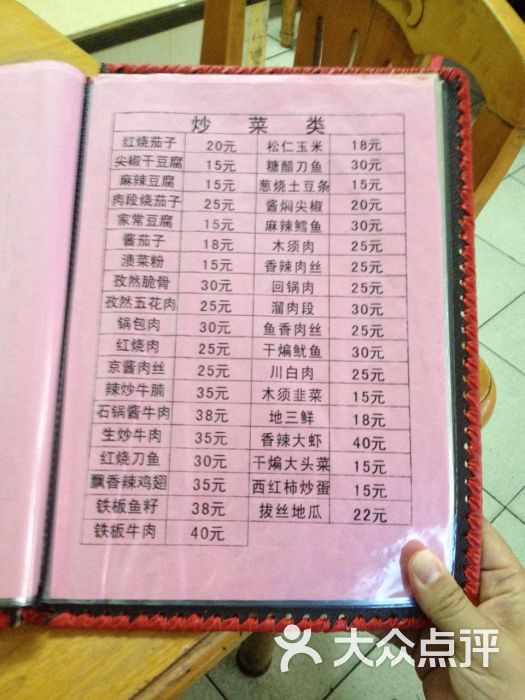 炒菜类
红烧茄子 20元 松仁玉米 18元
尖椒干豆腐 15元 糖醋刀鱼 30元
麻辣豆腐 15元 葱烧土豆条 15元
肉段烧茄子 25元 酱焖尖椒 20元
家常豆腐 15元 麻辣鳕鱼 30元
酱茄子 18元 木须肉 25元
渍菜粉 15元 香辣肉丝 25元
孜然脆骨 30元 回锅肉 25元
孜然五花肉 25元 溜肉段 30元
锅包肉 30元 鱼香肉丝 25元
红烧肉 25元 干煸鱿鱼 30元
京酱肉丝 25元 川白肉 25元
辣炒牛腩 35元 木须韭菜 15元
石锅酱牛肉 38元 地三鲜 18元
生炒牛肉 35元 香辣大虾 40元
红烧刀鱼 30元 干煸大头菜 15元
飘香辣鸡翅 35元 西红柿炒蛋 15元
铁板鱼籽 38元 拔丝地瓜 22元
铁板牛肉 40元
大众点评